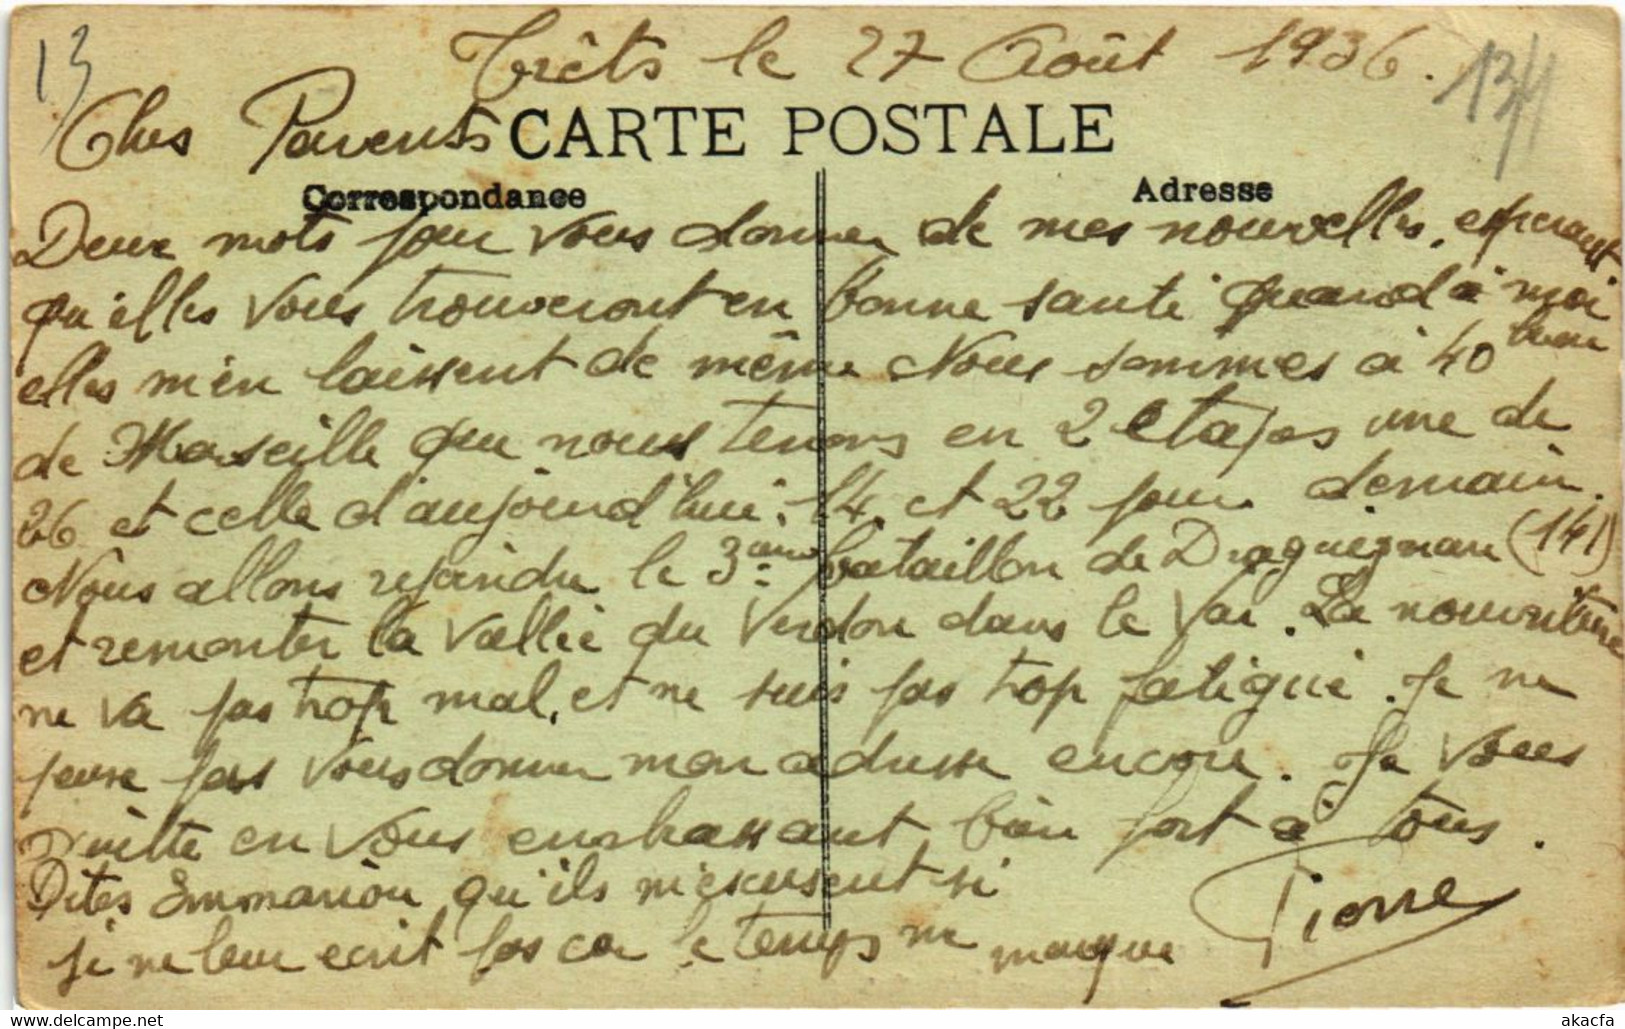 13
Trêts le 27 Août 1936.
134
Chers Parents
CARTE POSTALE
Correspondance
Adresse
Deux mots pour vous donner de mes nouvelles, esperant
qu'elles vous trouveront en bonne santé quand à moi
elles m'en laissent de même Nous sommes à 40
de Marseille que nous tenons en 2 etapes une de
26 et celle d'aujourd'hui 14 et 22 pour demain.
Nous allons rejoindre le 3ème bataillon de Draguignan (141)
et remonter la vallée du Verdon dans le Var. La nourriture
ne va pas trop mal, et ne suis pas trop fatigué. Je ne
peux pas vous donner mon adresse encore. Je vous
quitte en vous embrassant bien fort à tous.
Dites Emmarion qu'ils m'excusent si
je ne leur ecrit pas car le temps me manque
Pierre
akacfa